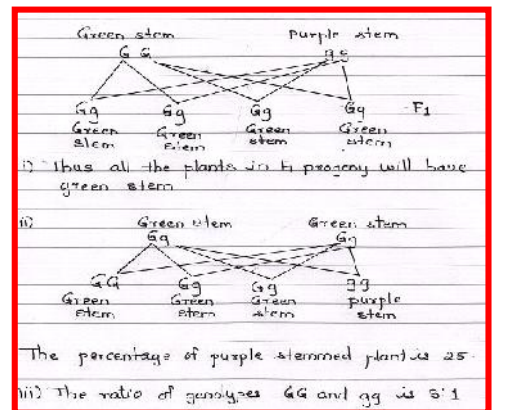 Green stem Purple stem
G G gg
Gg Gg Gg Gg F1
Green Green Green Green
stem stem stem stem
i) Thus all the plants in F1 progeny will have
green stem
ii) Green stem Green stem
Gg Gg
GG Gg Gg gg
Green Green Green purple
stem stem stem stem
The percentage of purple stemmed plant is 25.
iii) The ratio of genotypes GG and gg is